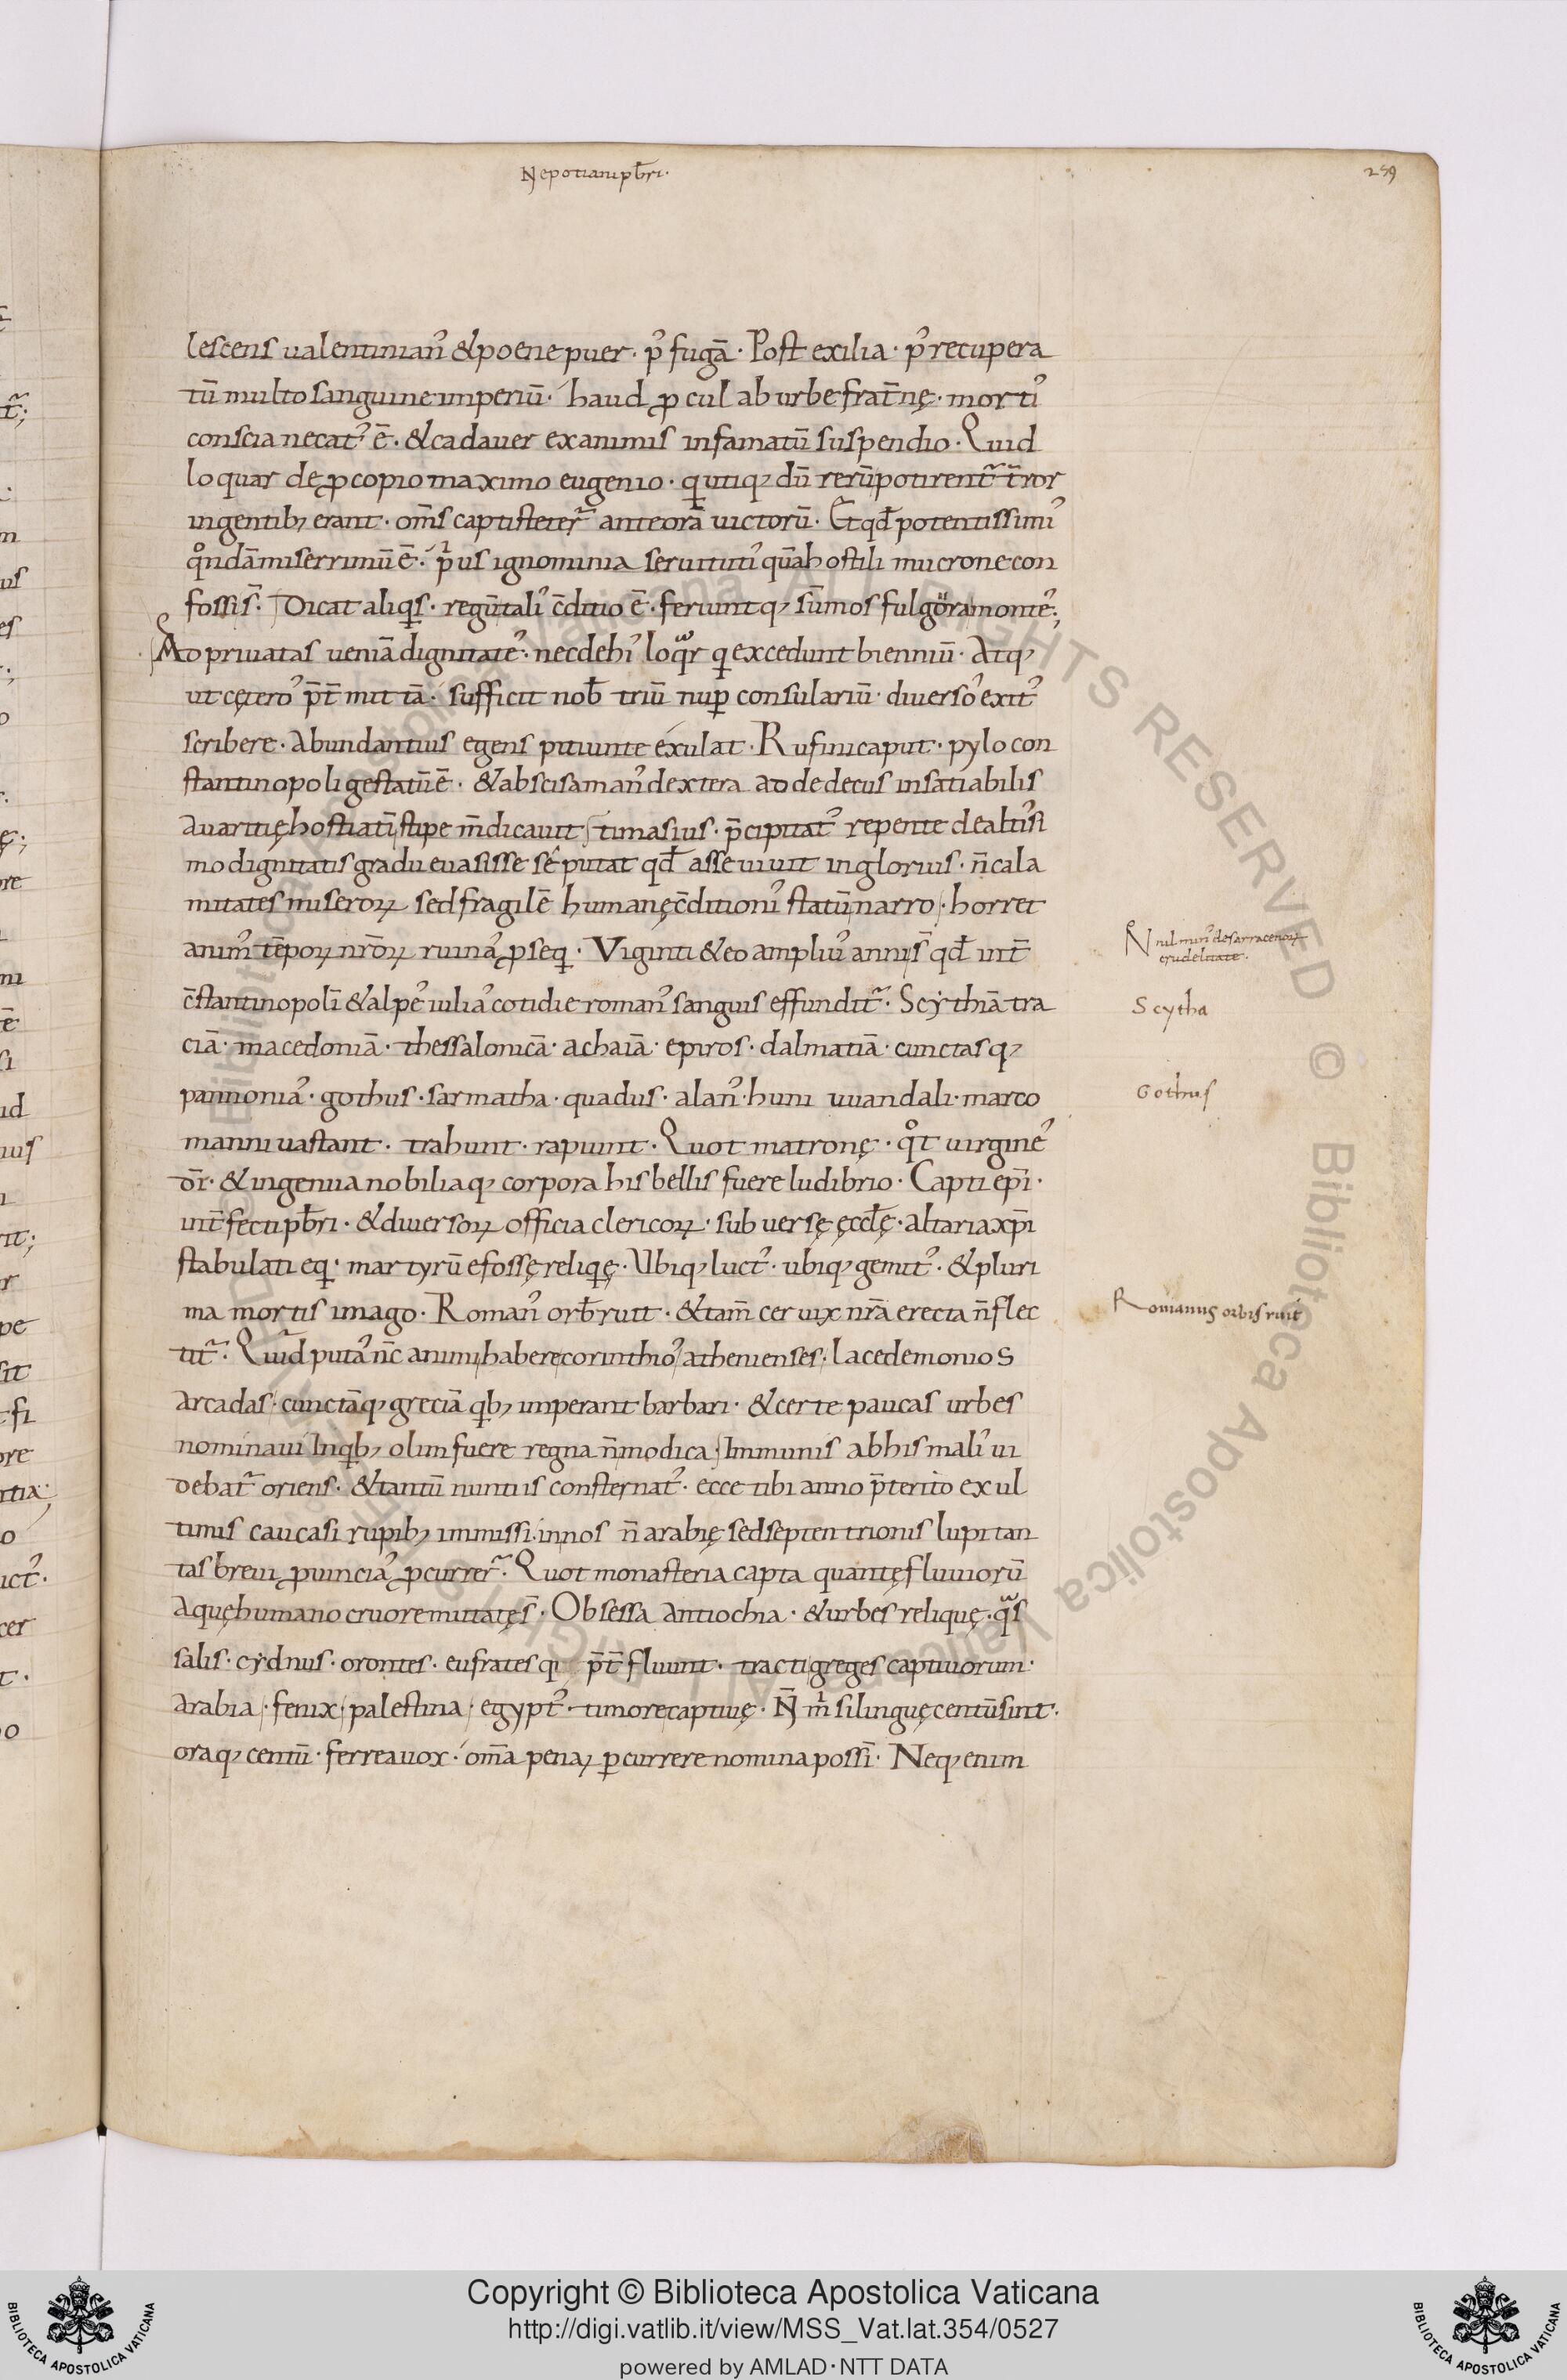 Nepotiani p̄bri·
259
lescens ualentinian᾿ & poene puer· p᾿ fugā· Post exilia· p᾿ recupera
tū multo sanguine imperiū· haud ꝓcul ab urbe frat̄nę· morti᾿
conscia necat᾿ ē· & cadauer exanimis infamatū suspendio· Quid
loquar de ꝓcopio maximo eugenio· qutiq, dū rerū potirent᷑ t̄ror
ingentib, erant· om̄s capti steter᷑ ante ora uictorū· Et qđ potentissimi᾿
q°ndā miserrimū ē· pⁱus ignominia seruituti᾿ quā hostili mucrone con
fossi s̄· Dicat aliqs· regū tali᾿ c̄ditio ē· feriuntq, sūmos fulgora monte᾿;
Ad priuatas ueniā dignitate᾿· nec de hi᾿ loqr q excedunt bienniū· Atq,
ut cętero᾿ p̄t̄mittā· sufficit nob̄ triū nuꝑ consulariū· diuerso᾿ exit᾿
scribere· Abundantius egens pitiunte exulat· Rufini caput· pylo con
stantinopoli gestatū ē· & abscisa man᾿ dextera ad dedecus insatiabilis
auaritię hostiatī stipe m̄dicauit· timasius· p̄cipitat᾿ repente de altis̄si
mo dignitatis gradu euasisse se putat qđ asse uiuit inglorius· n̄ cala
mitates miseroꝝ sed fragilē humanę c̄ditioni᾿ statū narro· horret
anim᾿ tēpoꝝ nr̄oꝝ ruina᾿ ꝑseq· Viginti & eo ampliu᾿ anni s̄ qđ int̄
c̄stantinopolī & alpe᾿ iulia᾿ cotidie roman᾿ sanguis effundit᷑· Scythiā tra
ciā· macedoniā· thessalonicā· achaiā· epiros· dalmatiā· cunctasq,
pannonia᾿· gothus· sarmatha· quadus· alan᾿· huni uuandali· marco
manni uastant· trahunt· rapiunt· Quot matronę· q°t uirgine᾿
dī· & ingenua nobiliaq, corpora his bellis fuere ludibrio· Capti epī·
int̄fecti p̄bri· & diuersoꝝ officia clericoꝝ· subuersę ęcclę· altaria xp̄i
stabulati eq· martyrū efossę reliqę· Ubiq, luct᾿· ubiq, gemit᾿· & pluri
ma mortis imago· Roman᾿ orb̄ ruit· & tam̄ ceruix nr̄a erecta n̄ flec
tit᷑· Quid puta᾿ n̄c animi habere corinthio᾿ athenienses· lacedemonios
arcadas· cunctāq, greciā qb, imperant barbari· & certe paucas urbes
nominaui In qb, olim fuere regna n̄ modica· Immunis ab his mali᾿ ui
debat᷑ oriens· & tantū nuntiis consternat᾿· ecce tibi anno p̄terito ex ul
timis caucasi rupib, immissi innos n̄ arabię sed septentrionis lupi tan
tas breui ꝓuincia᾿ ꝑcurrer᷑· Quot monasteria capta quantę fluuiorū
aquę humano cruore mutatę s̄· Obsessa antiochia· & urbes reliquę· q̃s
salis· cydnus· orontes· eufrates q p̄t̄fluunt· tracti greges captiuorum·
arabia· fenix· palestina· egypt᾿· timore captiuę· N̄ mⁱ si linguę centū sint·
oraq, centū· ferrea uox· om̄a penaꝝ ꝑcurrere nomina possī· Neq, enim
N nil mir᾿ de sarracenoꝝ
crudelitate·
Scytha
Gothus
Romanus orbis ruit
Copyright © Biblioteca Apostolica Vaticana
http://digi.vatlib.it/view/MSS_Vat.lat.354/0527
powered by AMLAD·NTT DATA